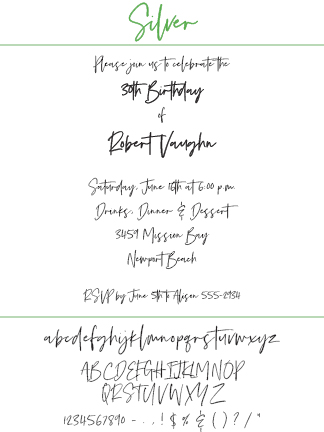 Silver
Please join us to celebrate the
30th Birthday
of
Robert Vaughn
Saturday, June 16th at 6:00 p.m.
Drinks, Dinner & Dessert
3459 Mission Bay
Newport Beach
RSVP by June 5th to Alison 555-2934
abcdefghijklmnopqrstuvwxyz
ABCDEFGHIJKLMNOP
QRSTUVWXYZ
1234567890 - . , ! $ % & ( ) ? / "